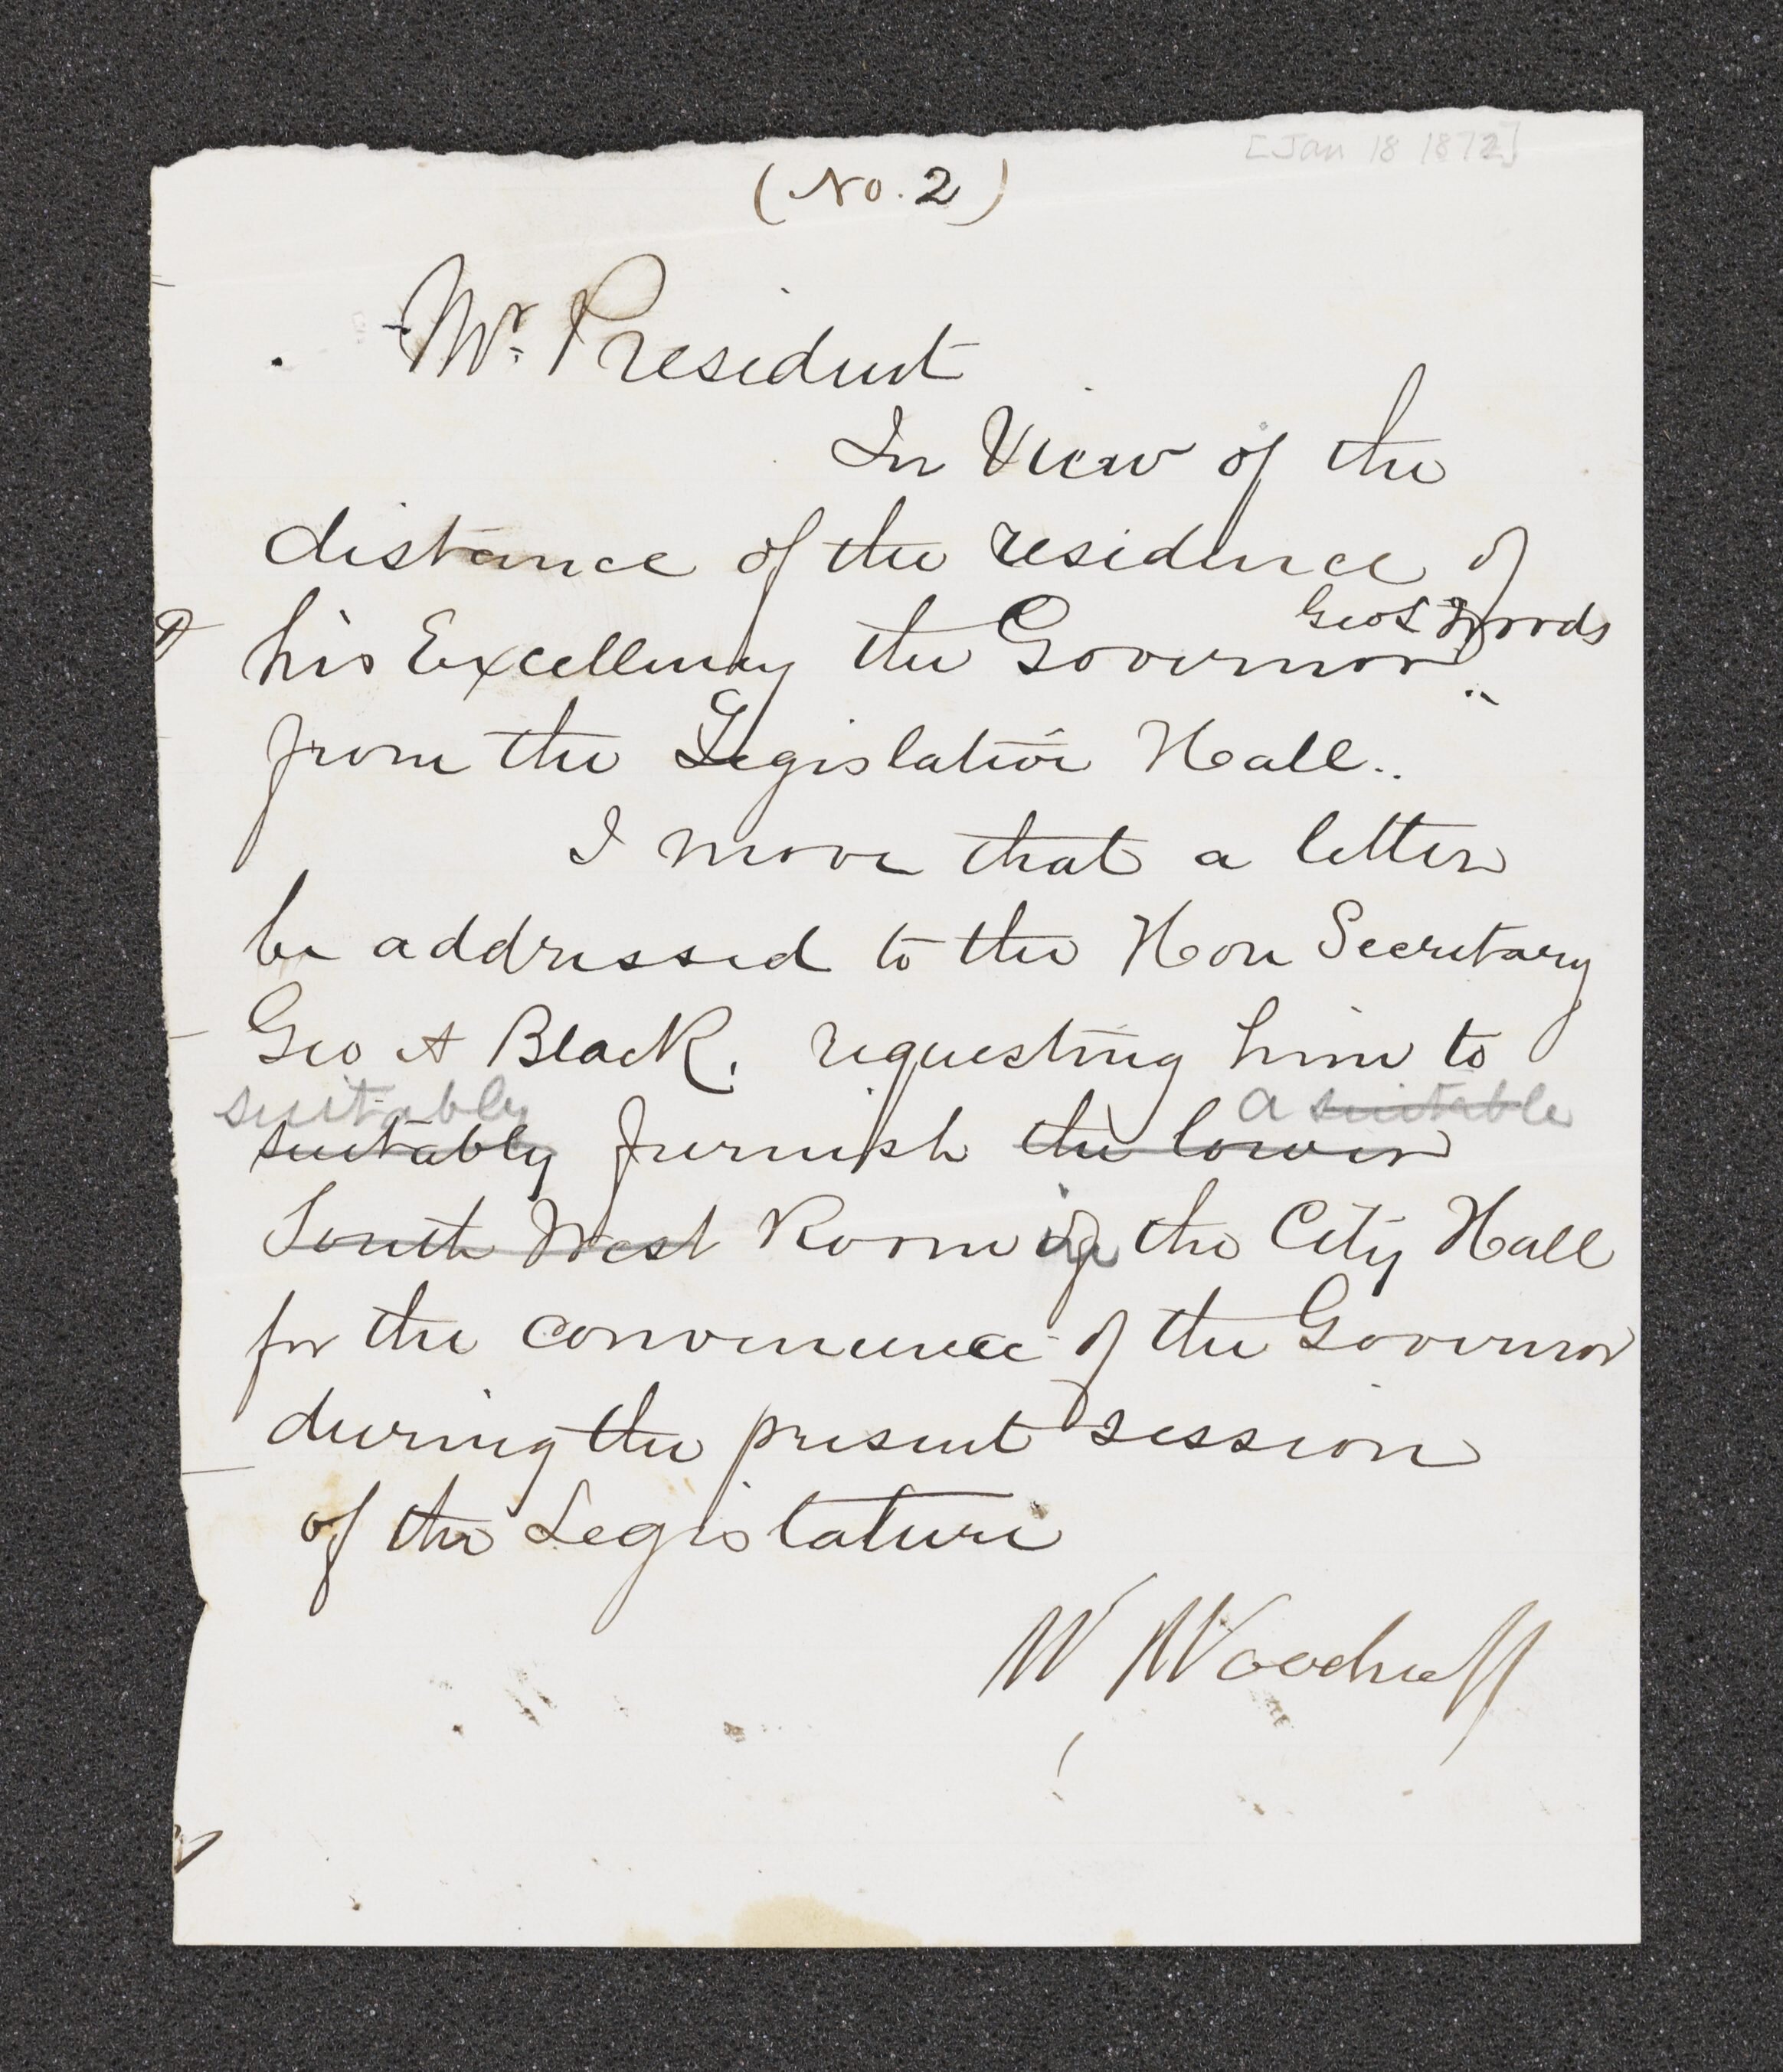 [Jan 18 1872]
(No. 2)
Mr. President
In View of the
distance of the residence of
Geo L Woods
his Excellency the Governor
from the Legislative Hall..
I move that a letter
be addressed to the Hon Secretary
Geo A Black. requesting him to
suitably a suitable
suitably furnish the lower
South West Room in the City Hall
for the convenience of the Governor
during the present session
of the Legislature
W Woodruff